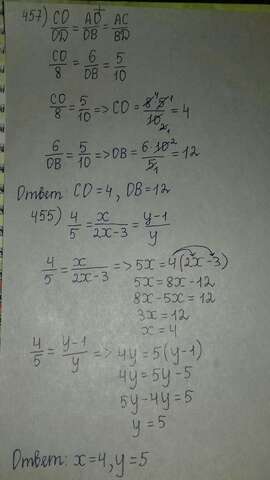 457) CO/OD = AO/OB = AC/BD
CO/8 = 6/OB = 5/10
CO/8 = 5/10 => CO = 8·5/10 = 4
6/OB = 5/10 => OB = 6·10/5 = 12
Ответ: CO=4, OB=12
455) 4/5 = x/2x-3 = y-1/y
4/5 = x/2x-3 => 5x=4(2x-3)
5x = 8x-12
8x-5x=12
3x=12
x=4
4/5 = y-1/y => 4y=5(y-1)
4y=5y-5
5y-4y=5
y=5
Ответ: x=4, y=5